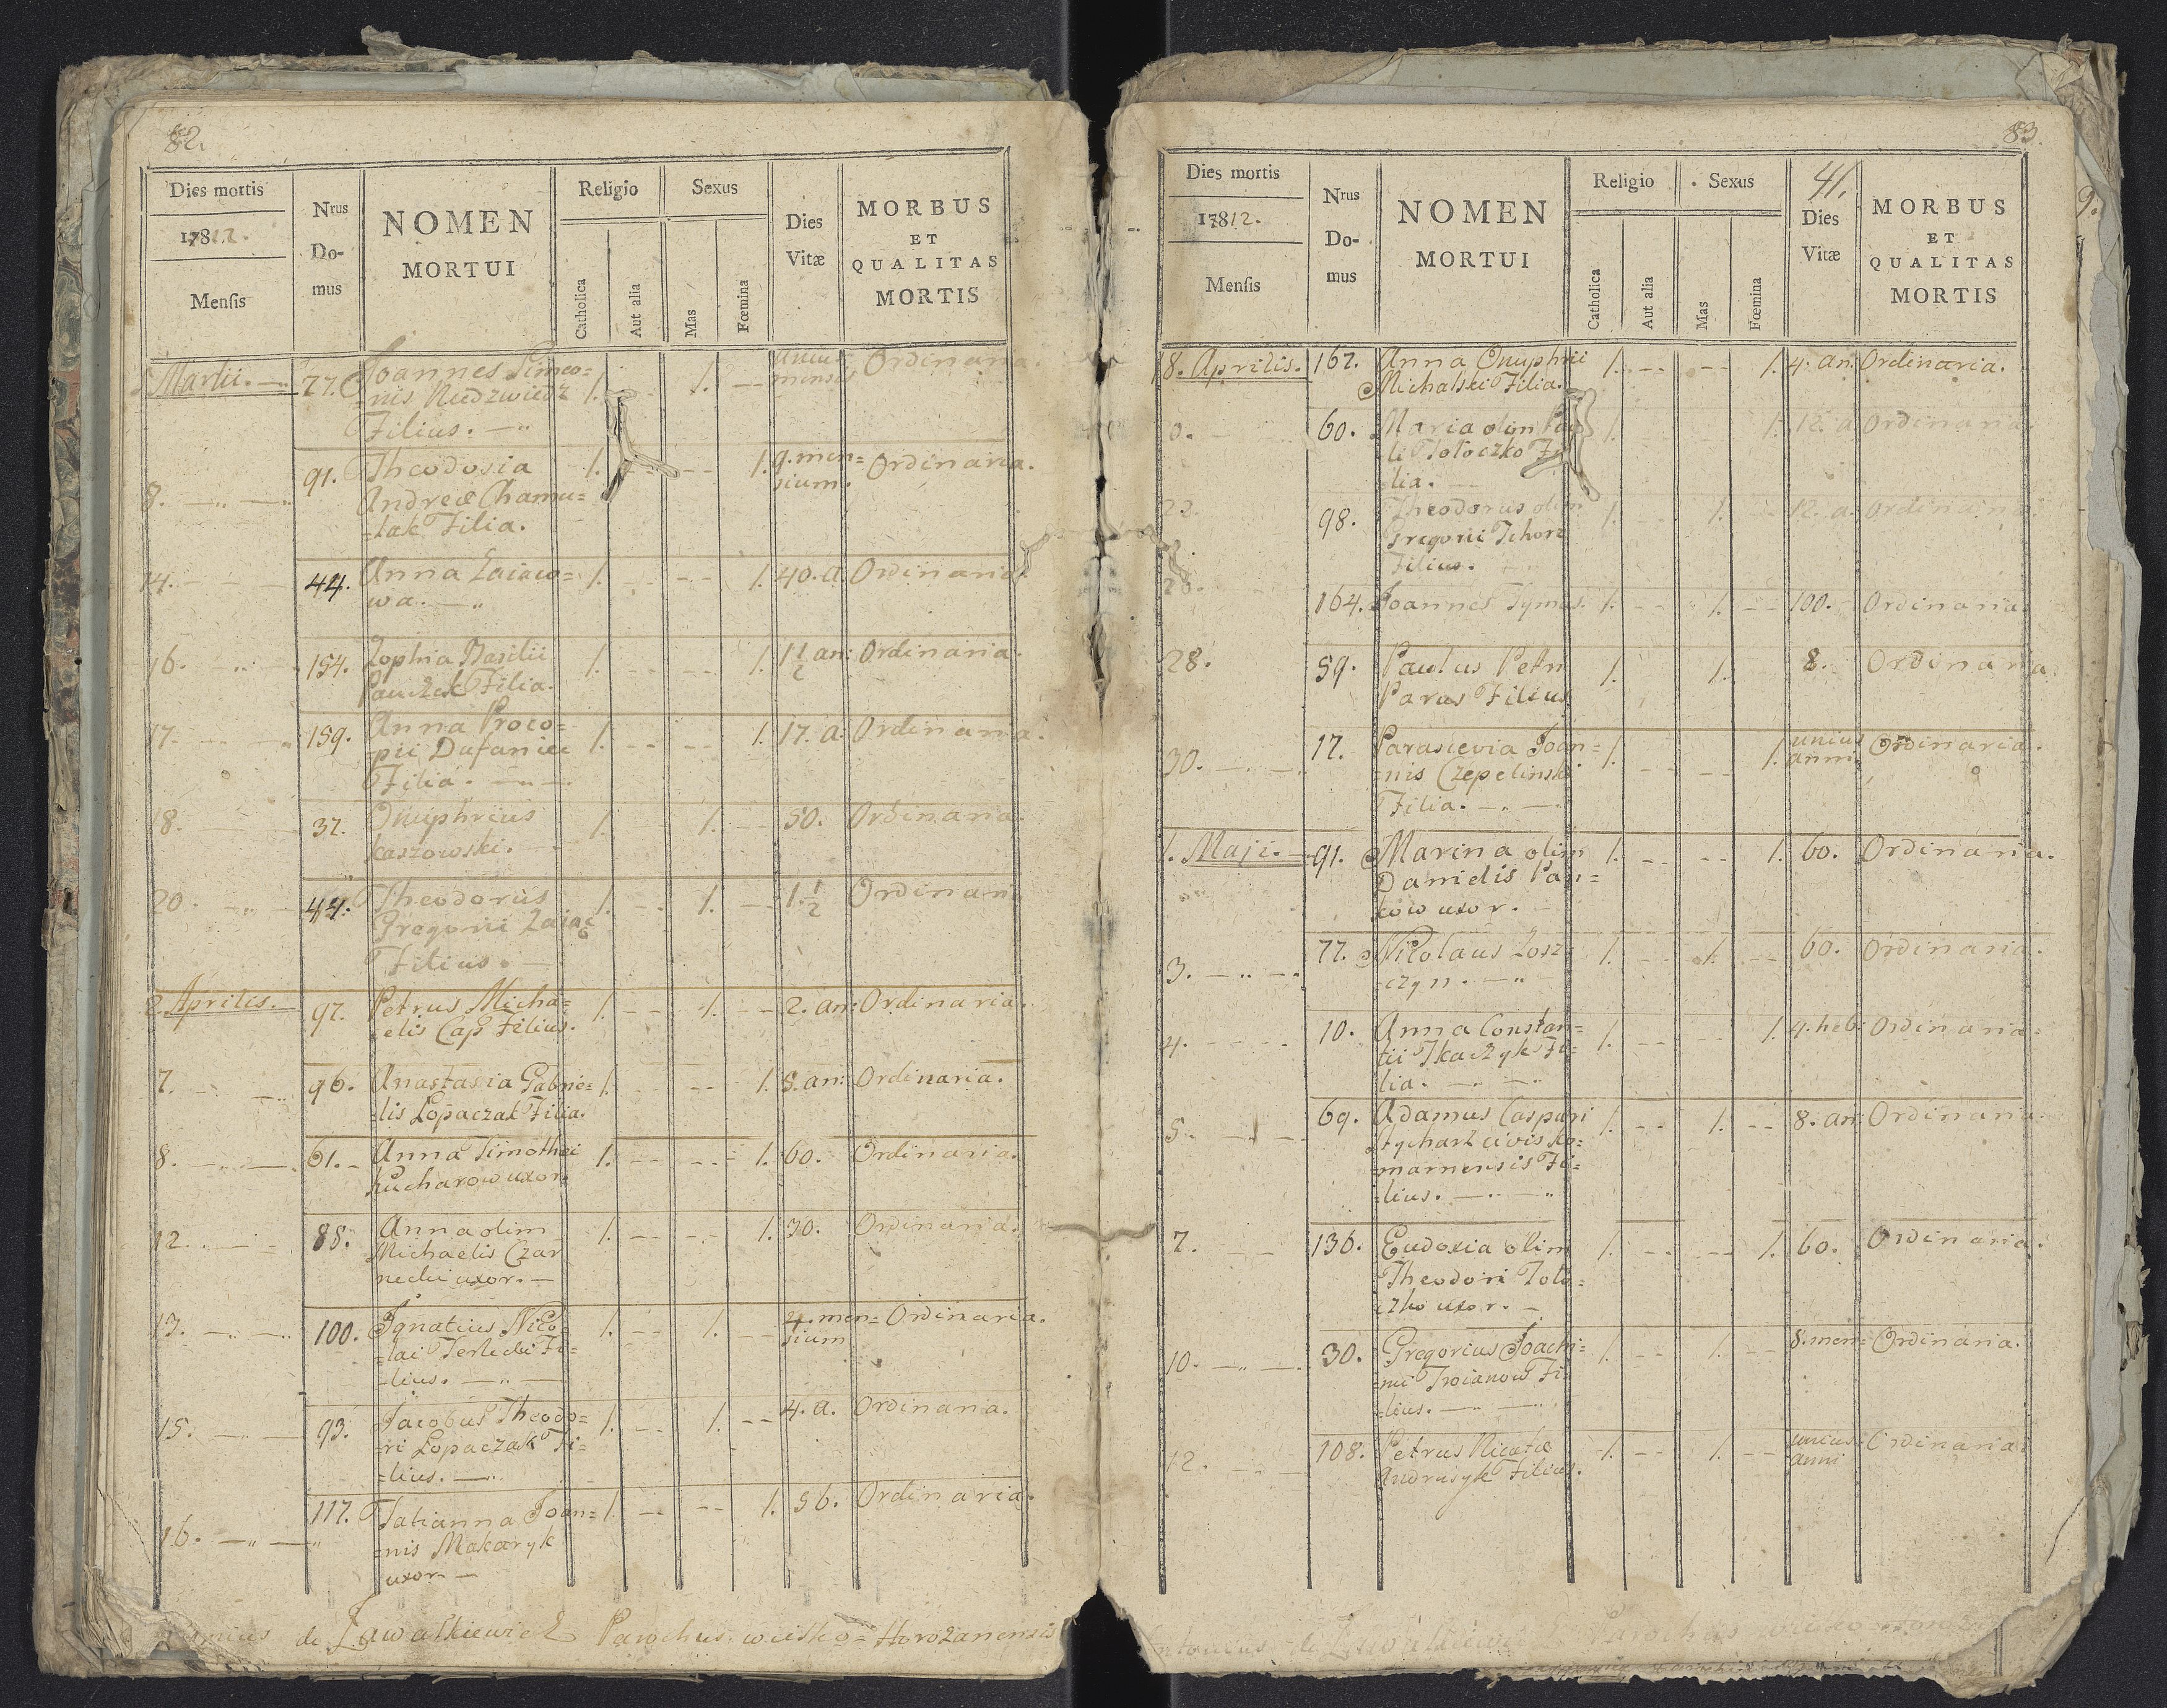 82.
Dies mortis
1812.
Mensis
Nrus
Do-
mus
NOMEN
MORTUI
Religio
Catholica
Aut alia
Sexus
Mas
Fœmina
Dies
Vitæ
MORBUS
ET
QUALITAS
MORTIS
Martii. 77. Joannes Simeo= 1. 1. unius Ordinaria.
=nis Niedzwiedz mensis
Filius.
8. 91. Theodosia 1. 1. 9. men= Ordinaria.
Andreæ Chamu= sium.
=lak Filia.
14. 44. Anna Zaiaco= 1. 1. 40. a. Ordinaria.
wa.
16. 154. Zophia Basilii 1. 1. 1 1/2 an: Ordinaria.
Filia.
17. 159. Anna Proco= 1. 1. 17. a. Ordinaria.
pii Dufaniec
Filia.
18. 37. Onuphrius 1. 1. 50. Ordinaria.
Kaszowski.
20. 44. Theodorus 1. 1. 1. 1/2 Ordinari
Gregorii Zaiac
Filius.
2. Aprilis. 97. Petrus Micha= 1. 1. 2. an: Ordinaria.
=elis Cap Filius.
7. 96. Anastasia Gabrie= 1. 1. 5. an: Ordinaria.
=lis Lopaczak Filia.
8. 61. Anna Timothei 1. 1. 60. Ordinaria.
Kucharow uxor.
12. 88. Anna olim 1. 1. 30. Ordinaria.
Michaelis Czar
necki uxor.
13. 100. Ignatius Nico= 1. 1. 4. men= Ordinaria.
=lai Terlecki Fi= sium
=lius.
15. 93. Jacobus Theodo= 1. 1. 4. a. Ordinaria.
=ri Lopaczak Fi=
=lius.
16. 117. Tatianna Joan= 1. 1. 56. Ordinaria.
=nis Makaryk
uxor.
de Parochus Horożanensis
83.
Dies mortis
1812.
Mensis
Nrus
Do-
mus
NOMEN
MORTUI
Religio
Catholica
Aut alia
Sexus
Mas
Fœmina
41.
Dies
Vitæ
MORBUS
ET
QUALITAS
MORTIS
18. Aprilis. 167. Anna Onuphrii 1. 1. 4. an: Ordinaria.
Michalski Filia.
60. Maria olim Pau 1. 1. 12. a. Ordinaria.
li Toloczko Fi
lia.
22. 98. Theodorus olim 1. 1. 12. a. Ordinaria.
Gregorii Tchorz
Filius.
164. Joannes Tymus. 1. 1. 100. Ordinaria.
28. 59. Paulus Petri 1. 1. 8. Ordinaria.
Paras Filius
30. 17. Parasievia Joan= 1. 1. unius Ordinaria.
=nis Czepelinski anni
Filia.
1. Maji. 91. Marina olim 1. 1. 60. Ordinaria.
Danielis Pan=
kow uxor.
3. 77. Nicolaus Losz= 1. 1. 60. Ordinaria.
=czyn.
4. 10. Anna Constan= 1. 1. 4. heb: Ordinaria.
tii Tkaczyk Fi=
lia.
5. 69. Adamus Caspari 1. 1. 8. an: Ordinaria.
Rycharz civis Ko=
=marnensis Fi=
=lius.
7. 136. Eudoxia olim 1. 1. 60. Ordinaria.
Theodori Tolo=
czko uxor.
10. 30. Gregorius Joachi= 1. 1. 8. men= Ordinaria.
=mi Troianow Fi
=lius.
12. 108. Petrus Nicetæ 1. 1. unius Ordinaria
Andrusyk Filius. anni